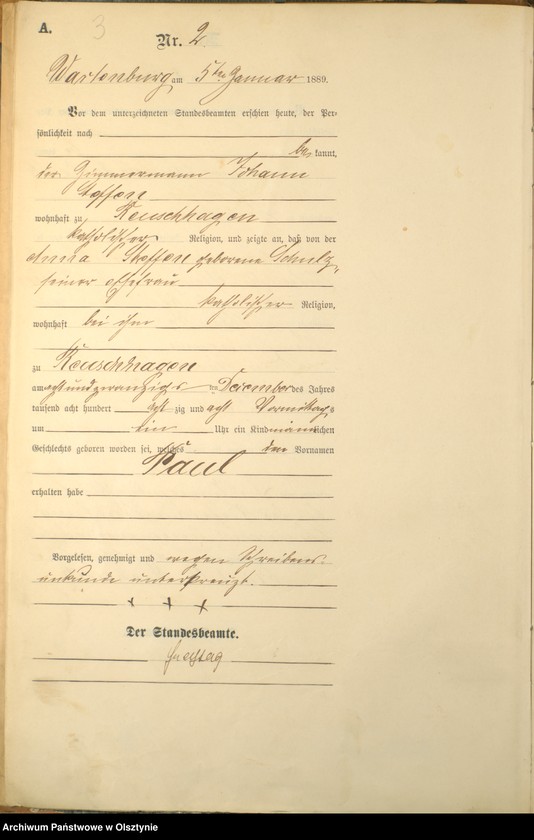 A.
3
Nr. 2.
Wartenburg am 5ten Januar 1889.
Vor dem unterzeichneten Standesbeamten erschien heute, der Per-
sönlichkeit nach
be kannt,
der Zimmermann Johann
Steffen
wohnhaft zu Reuschhagen
katholischer Religion, und zeigte an, daß von der
Anna Steffen geborene Schulz,
seiner Ehefrau
katholischer Religion,
wohnhaft bei ihm
zu Reuschhagen
am acht und zwanzigs ten Dezember des Jahres
tausend acht hundert acht zig und acht Vormittags
um ein Uhr ein Kind männlichen
Geschlechts geboren worden sei, welches den Vornamen
Paul
erhalten habe
Vorgelesen, genehmigt und wegen Schreibens-
unkunde unterkreuzt.
+ + +
Der Standesbeamte.
Freytag
Archiwum Państwowe w Olsztynie